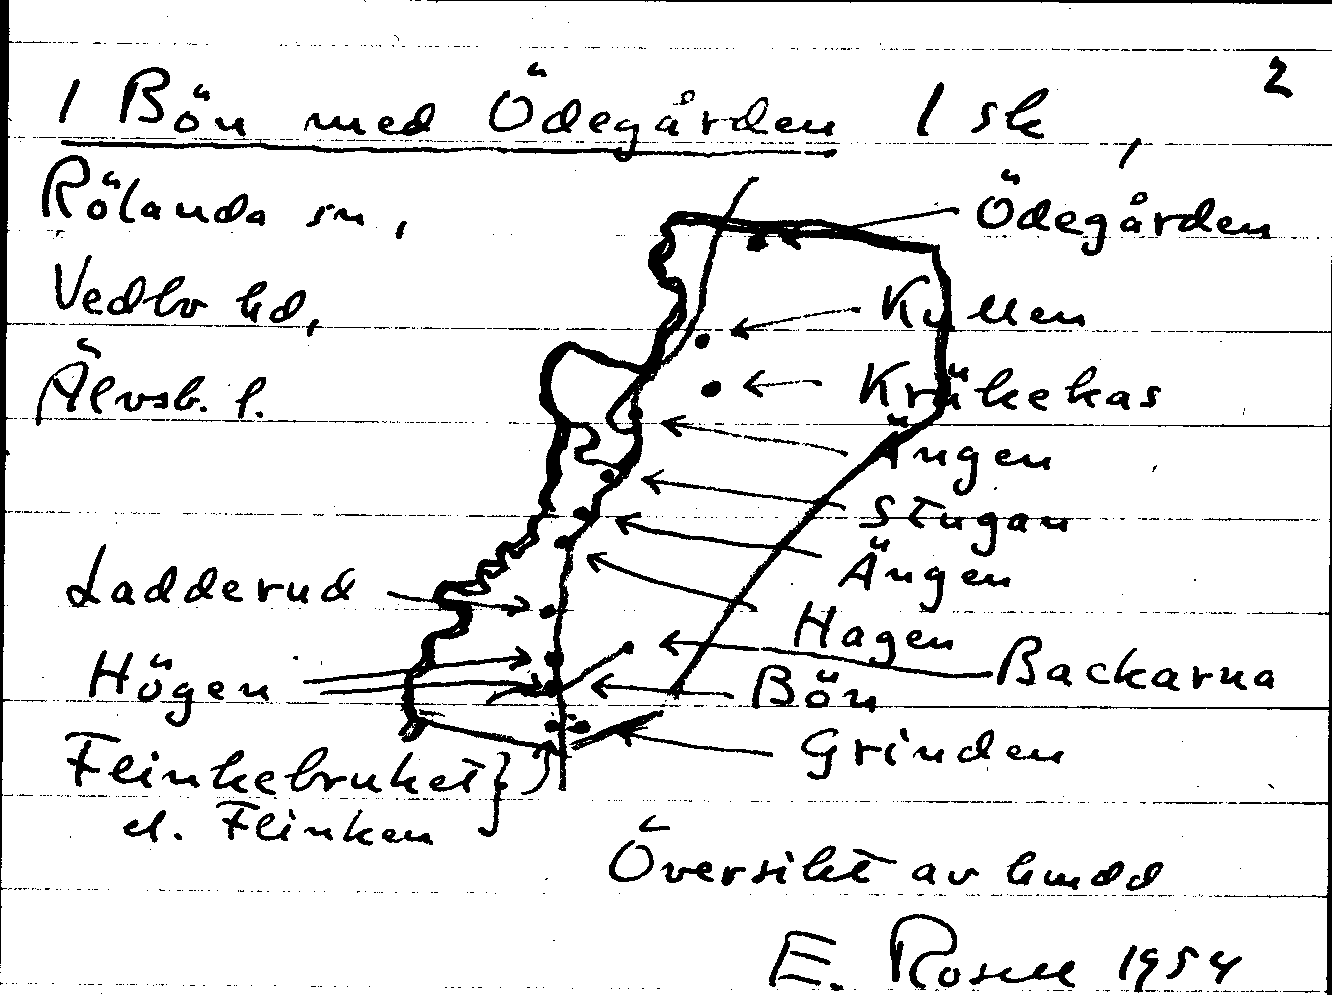 2
1 Bön med Ödegården 1 sk,
Rölanda sn,
Ödegården
Vedbo hd,
Kullen
Älvsb. l.
Kråkekas
Ängen
Stugan
Ängen
Ladderud
Hagen
Högen
Backarna
Bön
Grinden
Flinkebruket
el. Flinken
Översikt av hmdd
E. Rosell 1954